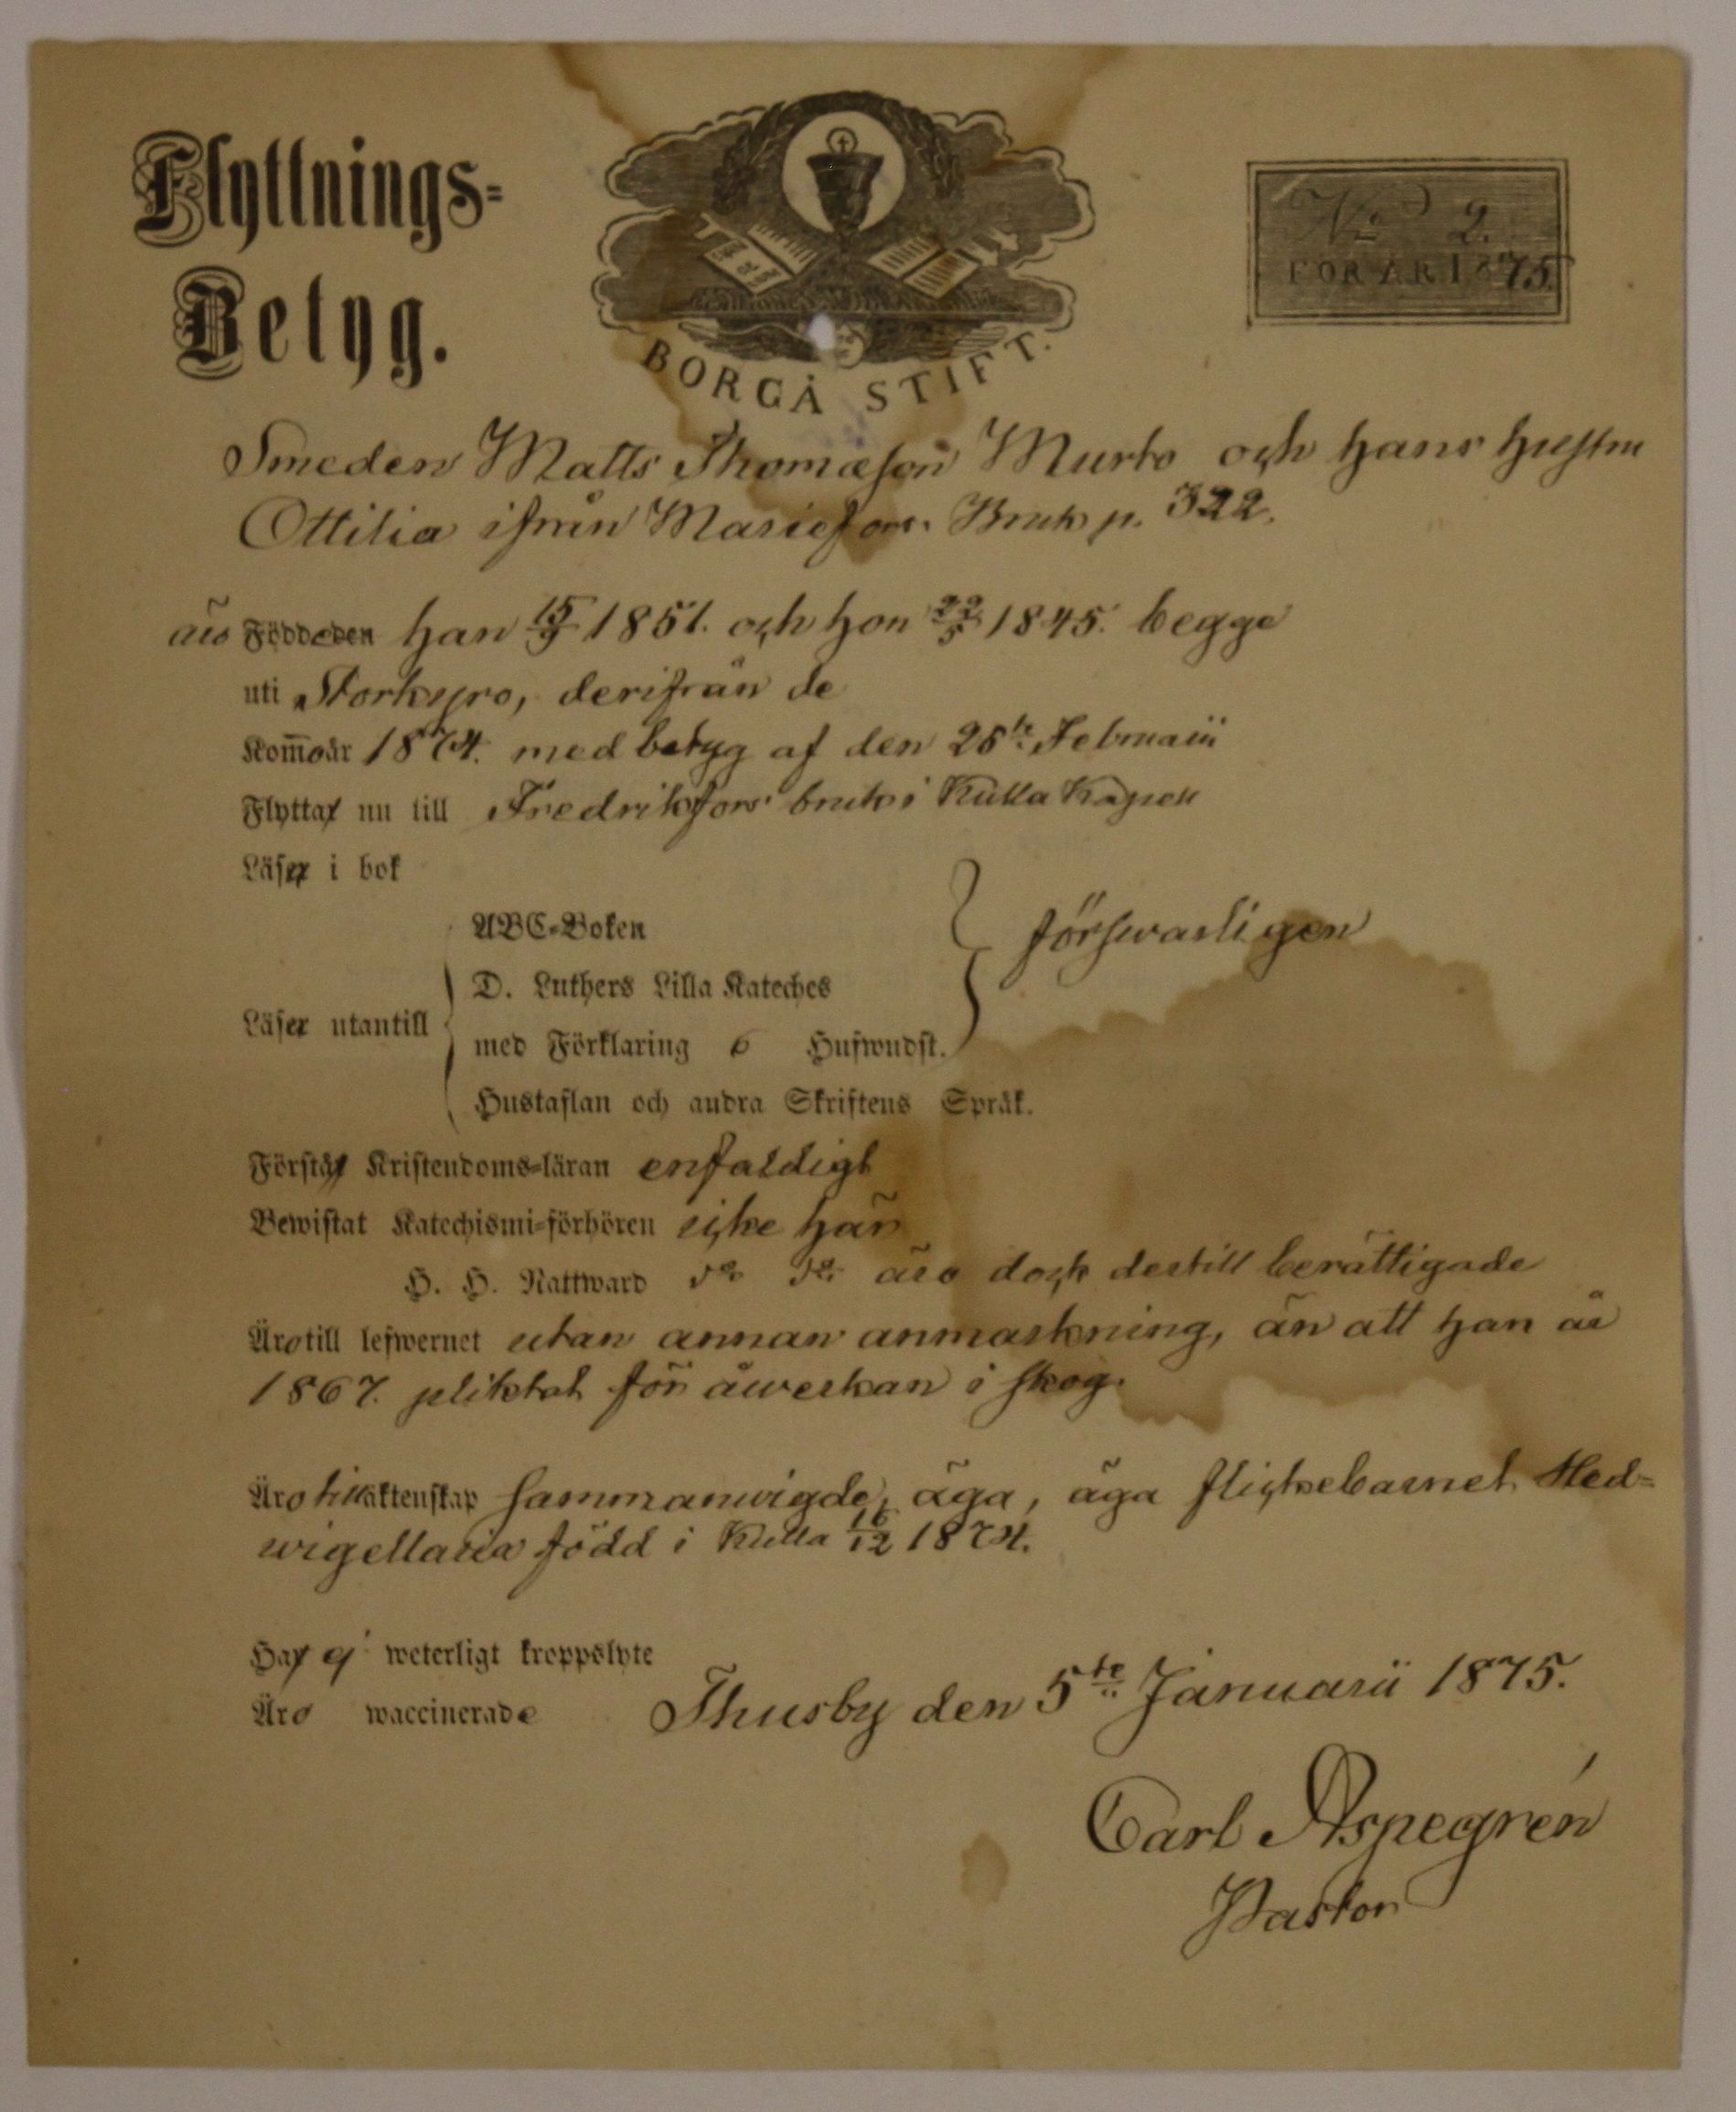 Flyttnings-
Betyg.
BORGÅ STIFT.
No 2.
FÖR ÅR 1875.
Smeden Matts Thomasson Murto och hans hustru
Ottilia ifrån Mariefors Bruk p. 322.
äro Födde den han 15/9 1851. och hon 22/5 1845. begge
uti Storkyro, derifrån de
Kom̄o år 1874. med betyg af den 25te Februarii
Flytta nu till Fredriksfors bruk i Kulla Kapell
Läsa i bok
ABC-Boken
D. Luthers Lilla Kateches
försvarligen
Läsa utantill
med Förklaring 6 Hufwudst.
Hustaflan och andra Skriftens Språk.
Förstå Kristendoms-läran enfaldigt
Bewistat Katechismi-förhören icke här
H. H. Nattward do do äro dock dertill berättigade
Äro till lefwernet utan annan anmärkning, än att han år
1867. pliktat för åwerkan i skog.
Äro till äktenskap sammanvigde, äga, äga flickebarnet Hed-
wig Maria född i Kulla 16/12 1874.
Ha ej weterligt kroppslyte
Äro waccinerade
Thusby den 5te Januarii 1875.
Carl Aspegrén
Pastor